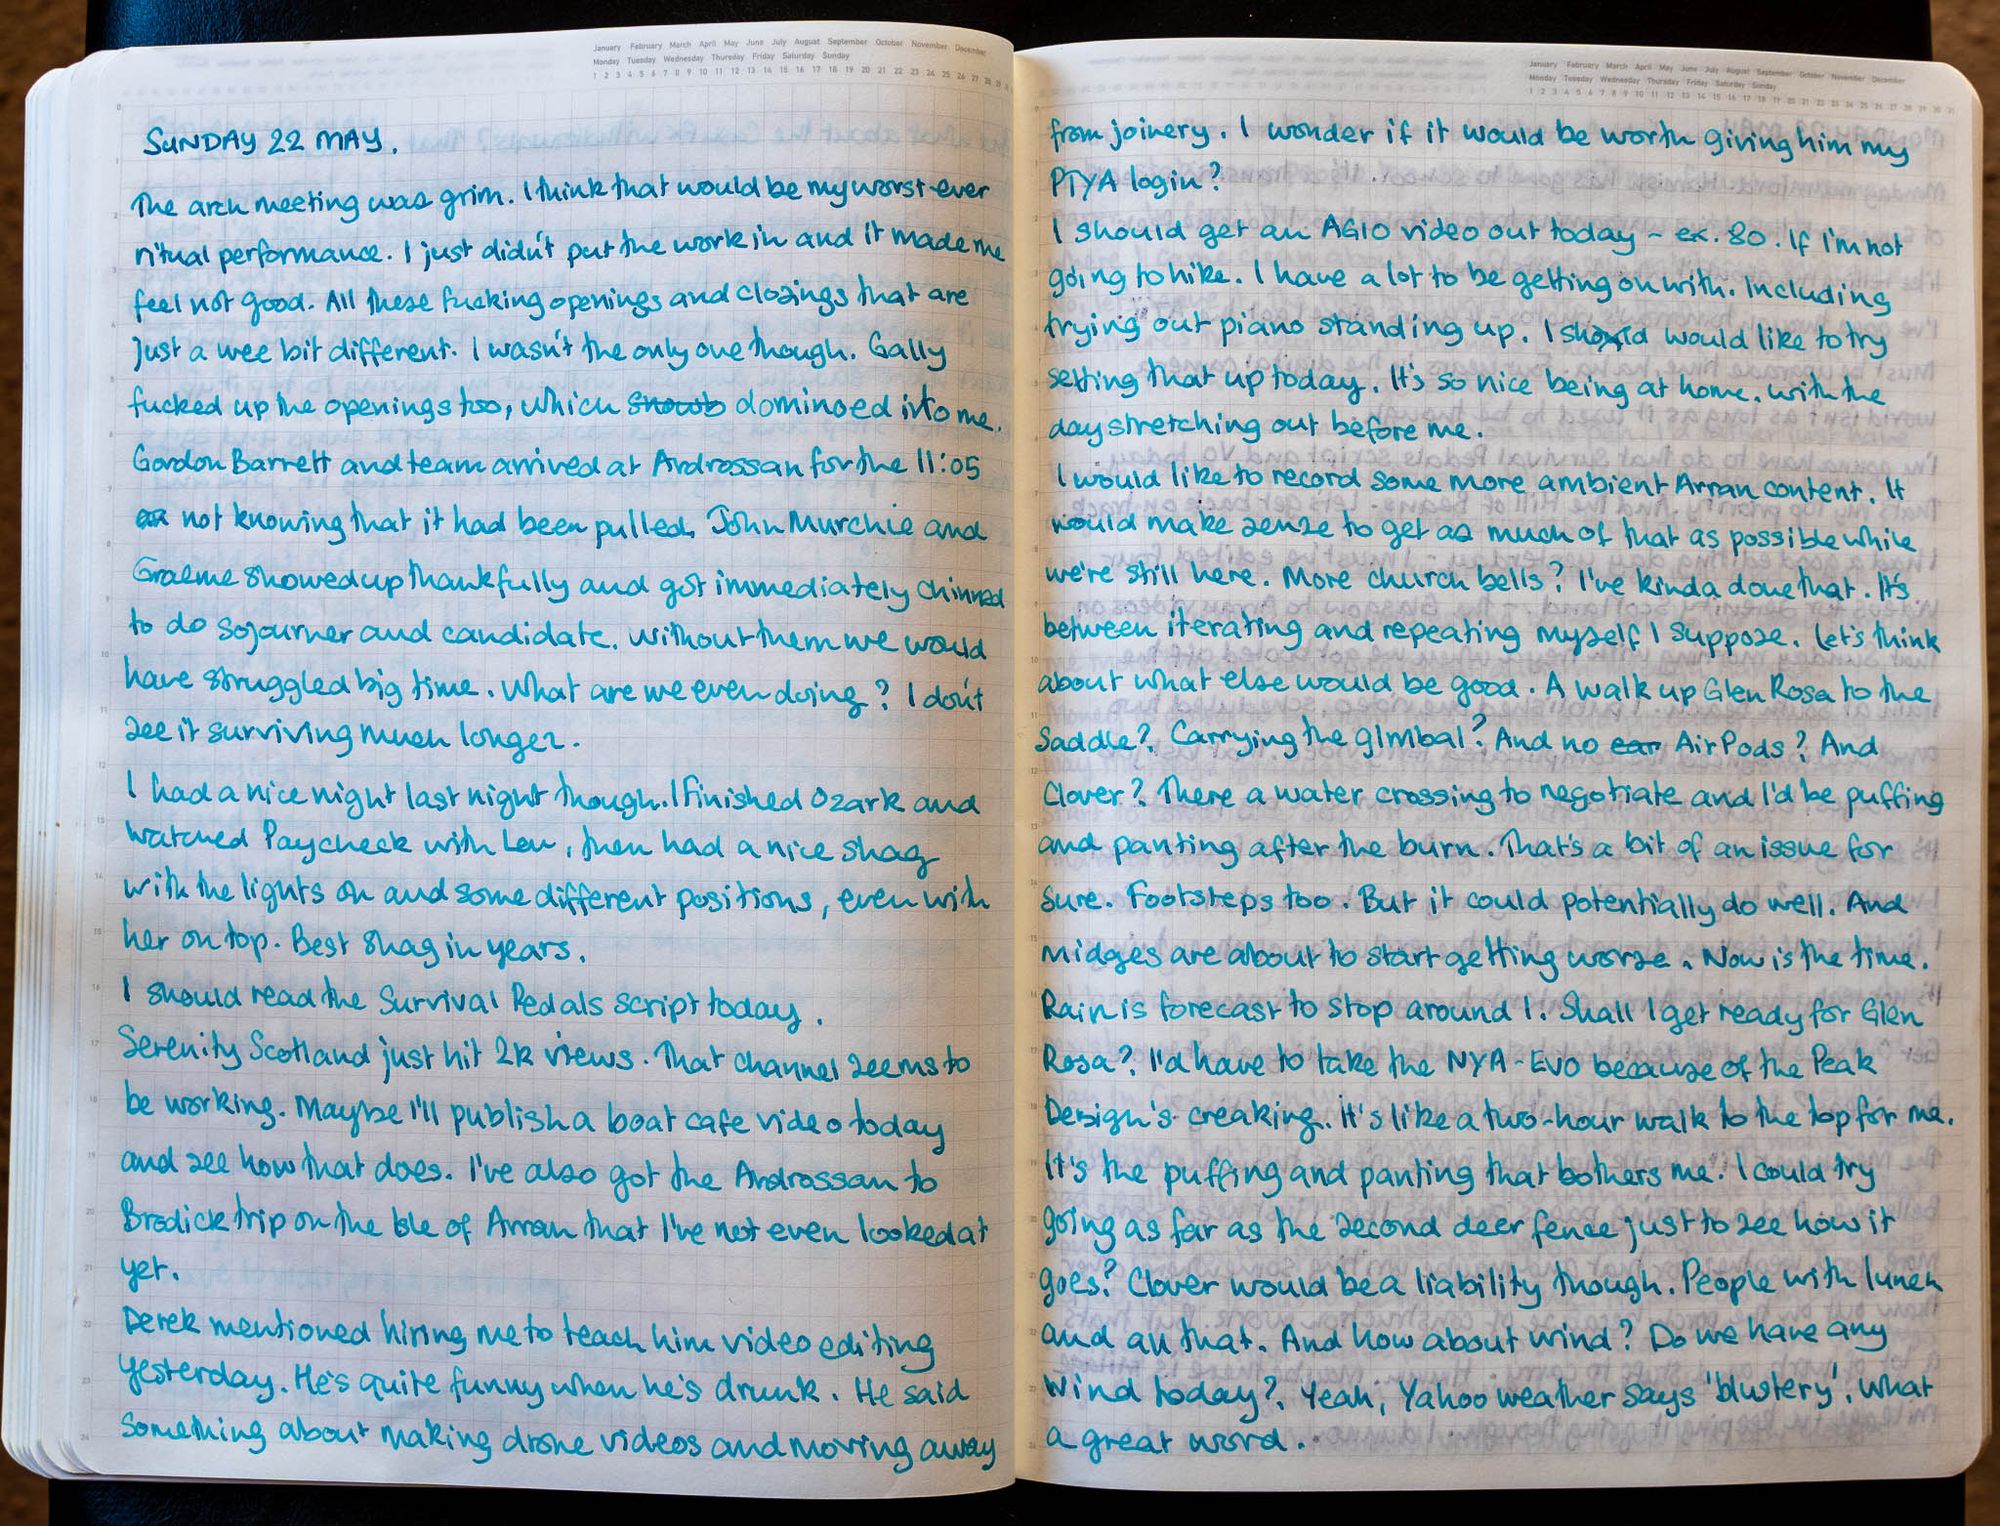 January February March April May June July August September October November December
Monday Tuesday Wednesday Thursday Friday Saturday Sunday
1 2 3 4 5 6 7 8 9 10 11 12 13 14 15 16 17 18 19 20 21 22 23 24 25 26 27 28 29
SUNDAY 22 MAY.
The arch meeting was grim. I think that would be my worst-ever
ritual performance. I just didn't put the work in and it made me
feel not good. All these fucking openings and closings that are
just a wee bit different. I wasn't the only one though. Gally
fucked up the openings too, which dominoed into me.
Gordon Barrett and team arrived at Ardrossan for the 11:05
not knowing that it had been pulled. John Murchie and
Graeme showed up thankfully and got immediately chinned
to do sojourner and candidate. Without them we would
have struggled big time. What are we even doing? I don't
see it surviving much longer.
I had a nice night last night though. I finished Ozark and
watched Paycheck with Lou, then had a nice shag
with the lights on and some different positions, even with
her on top. Best shag in years.
I should read the Survival Pedals script today.
Serenity Scotland just hit 2k views. That channel seems to
be working. Maybe I'll publish a boat cafe video today
and see how that does. I've also got the Ardrossan to
Brodick trip on the Isle of Arran that I've not even looked at
yet.
Derek mentioned hiring me to teach him video editing
yesterday. He's quite funny when he's drunk. He said
something about making drone videos and moving away
January February March April May June July August September October November December
Monday Tuesday Wednesday Thursday Friday Saturday Sunday
1 2 3 4 5 6 7 8 9 10 11 12 13 14 15 16 17 18 19 20 21 22 23 24 25 26 27 28 29 30 31
from joinery. I wonder if it would be worth giving him my
PTYA login?
I should get an AG10 video out today - ex. 80. If I'm not
going to hike. I have a lot to be getting on with. Including
trying out piano standing up. I should would like to try
setting that up today. It's so nice being at home. With the
day stretching out before me.
I would like to record some more ambient Arran content. It
would make sense to get as much of that as possible while
we're still here. More church bells? I've kinda done that. It's
between iterating and repeating myself I suppose. Let's think
about what else would be good. A walk up Glen Rosa to the
Saddle? Carrying the gimbal? And no ear AirPods? And
Clover? There a water crossing to negotiate and I'd be puffing
and panting after the burn. That's a bit of an issue for
sure. Footsteps too. But it could potentially do well. And
midges are about to start getting worse. Now is the time.
Rain is forecast to stop around 1. Shall I get ready for Glen
Rosa? I'd have to take the NYA-EVO because of the Peak
Design's creaking. It's like a two-hour walk to the top for me.
It's the puffing and panting that bothers me. I could try
going as far as the second deer fence just to see how it
goes? Clover would be a liability though. People with lunch
and all that. And how about wind? Do we have any
wind today? Yeah, Yahoo weather says 'blustery'. What
a great word..